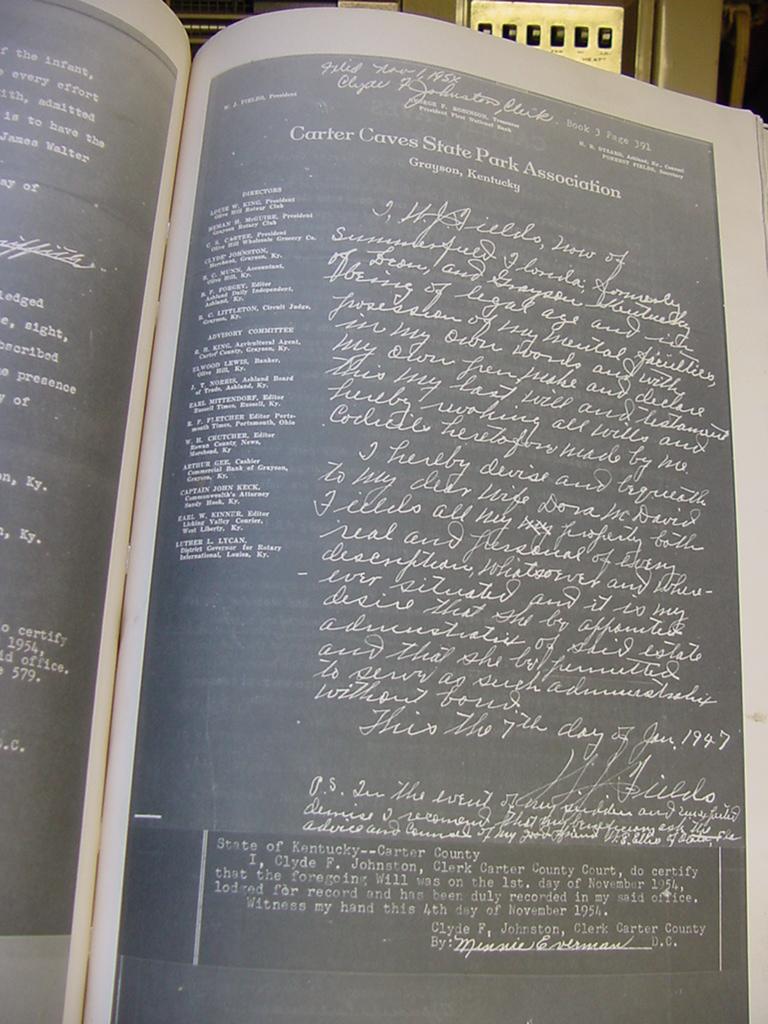 f the infant,
e every effort
ith, admitted
is to have the
James Walter
ay of
ledged
e, sight,
bscribed
e presence
y of
n, Ky.
n, Ky.
o certify
1954,
id office.
e 579.
.C.
Filed Nov 1, 195
Clyde F Johnston, Clerk
Book 3 Page 391
W. J. FIELDS, President
GEORGE F. ROBINSON, Treasurer
President First National Bank
H. R. DYSARD, Ashland, Ky., Counsel
FORREST FIELDS, Secretary
Carter Caves State Park Association
Grayson, Kentucky
DIRECTORS
LOUIE W. KING, President
Olive Hill Rotary Club
HEMAN H. McGUIRE, President
Grayson Rotary Club
C. S. CARTER, President
Olive Hill Wholesale Grocery Co.
CLYDE JOHNSTON,
Merchant, Grayson, Ky.
B. C. MUNN, Accountant,
Olive Hill, Ky.
B. F. FORGEY, Editor
Ashland Daily Independent,
Ashland, Ky.
R. C. LITTLETON, Circuit Judge,
Grayson, Ky.
ADVISORY COMMITTEE
R. H. KING, Agricultural Agent,
Carter County, Grayson, Ky.
ELWOOD LEWIS, Banker,
Olive Hill, Ky.
J. T. NORRIS, Ashland Board
of Trade, Ashland, Ky.
EARL MITTENDORF, Editor
Russell Times, Russell, Ky.
R. F. FLETCHER Editor Ports-
mouth Times, Portsmouth, Ohio
W. H. CRUTCHER, Editor
Rowan County News,
Morehead, Ky
ARTHUR GEE, Cashier
Commercial Bank of Grayson,
Grayson, Ky.
CAPTAIN JOHN KECK,
Commonwealth's Attorney
Sandy Hook, Ky.
EARL W. KINNER, Editor
Licking Valley Courier,
West Liberty, Ky.
LUTHER L. LYCAN,
District Governor for Rotary
International, Louisa, Ky.
I, W J Fields, now of
Summerfield, Florida, formerly
of Deon, and Grayson Kentucky
being of legal age and in
possession of my mental faculties,
in my own words and with
my own pen make and declare
this my last will and testament
hereby revoking all wills and
Codicils heretofore made by me
I hereby devise and bequeath
to my dear wife Dora McDavid
Fields all my property both
real and personal of every
description, whatsoever and where-
ever situated and it is my
desire that she be appointed
administratrix of said estate
and that she be permitted
to serve as such administratrix
without bond.
This the 7th day of Jan, 1947
W. J. Fields
P.S. In the event of my sudden and unexpected
demise I recommend that my
advice and counsel of my good friend
State of Kentucky--Carter County
I, Clyde F. Johnston, Clerk Carter County Court, do certify
that the foregoing Will was on the 1st. day of November 1954,
lodged for record and has been duly recorded in my said office.
Witness my hand this 4th day of November 1954.
Clyde F, Johnston, Clerk Carter County
By: Minnie Everman D.C.